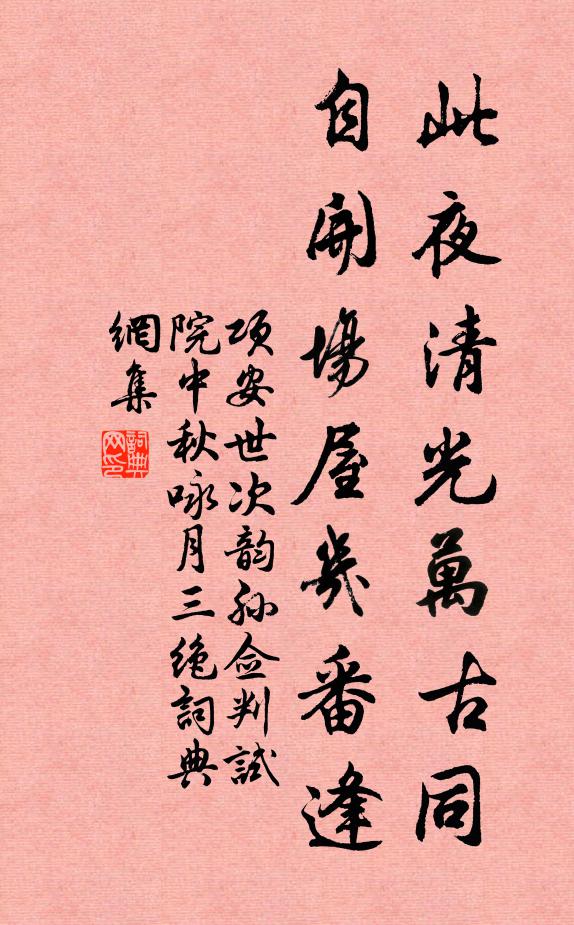 此夜清光萬古同
自開場屋幾番逢
项安世次韵孙佥判試
院中秋咏月三绝詞典
網集
詞典
网印